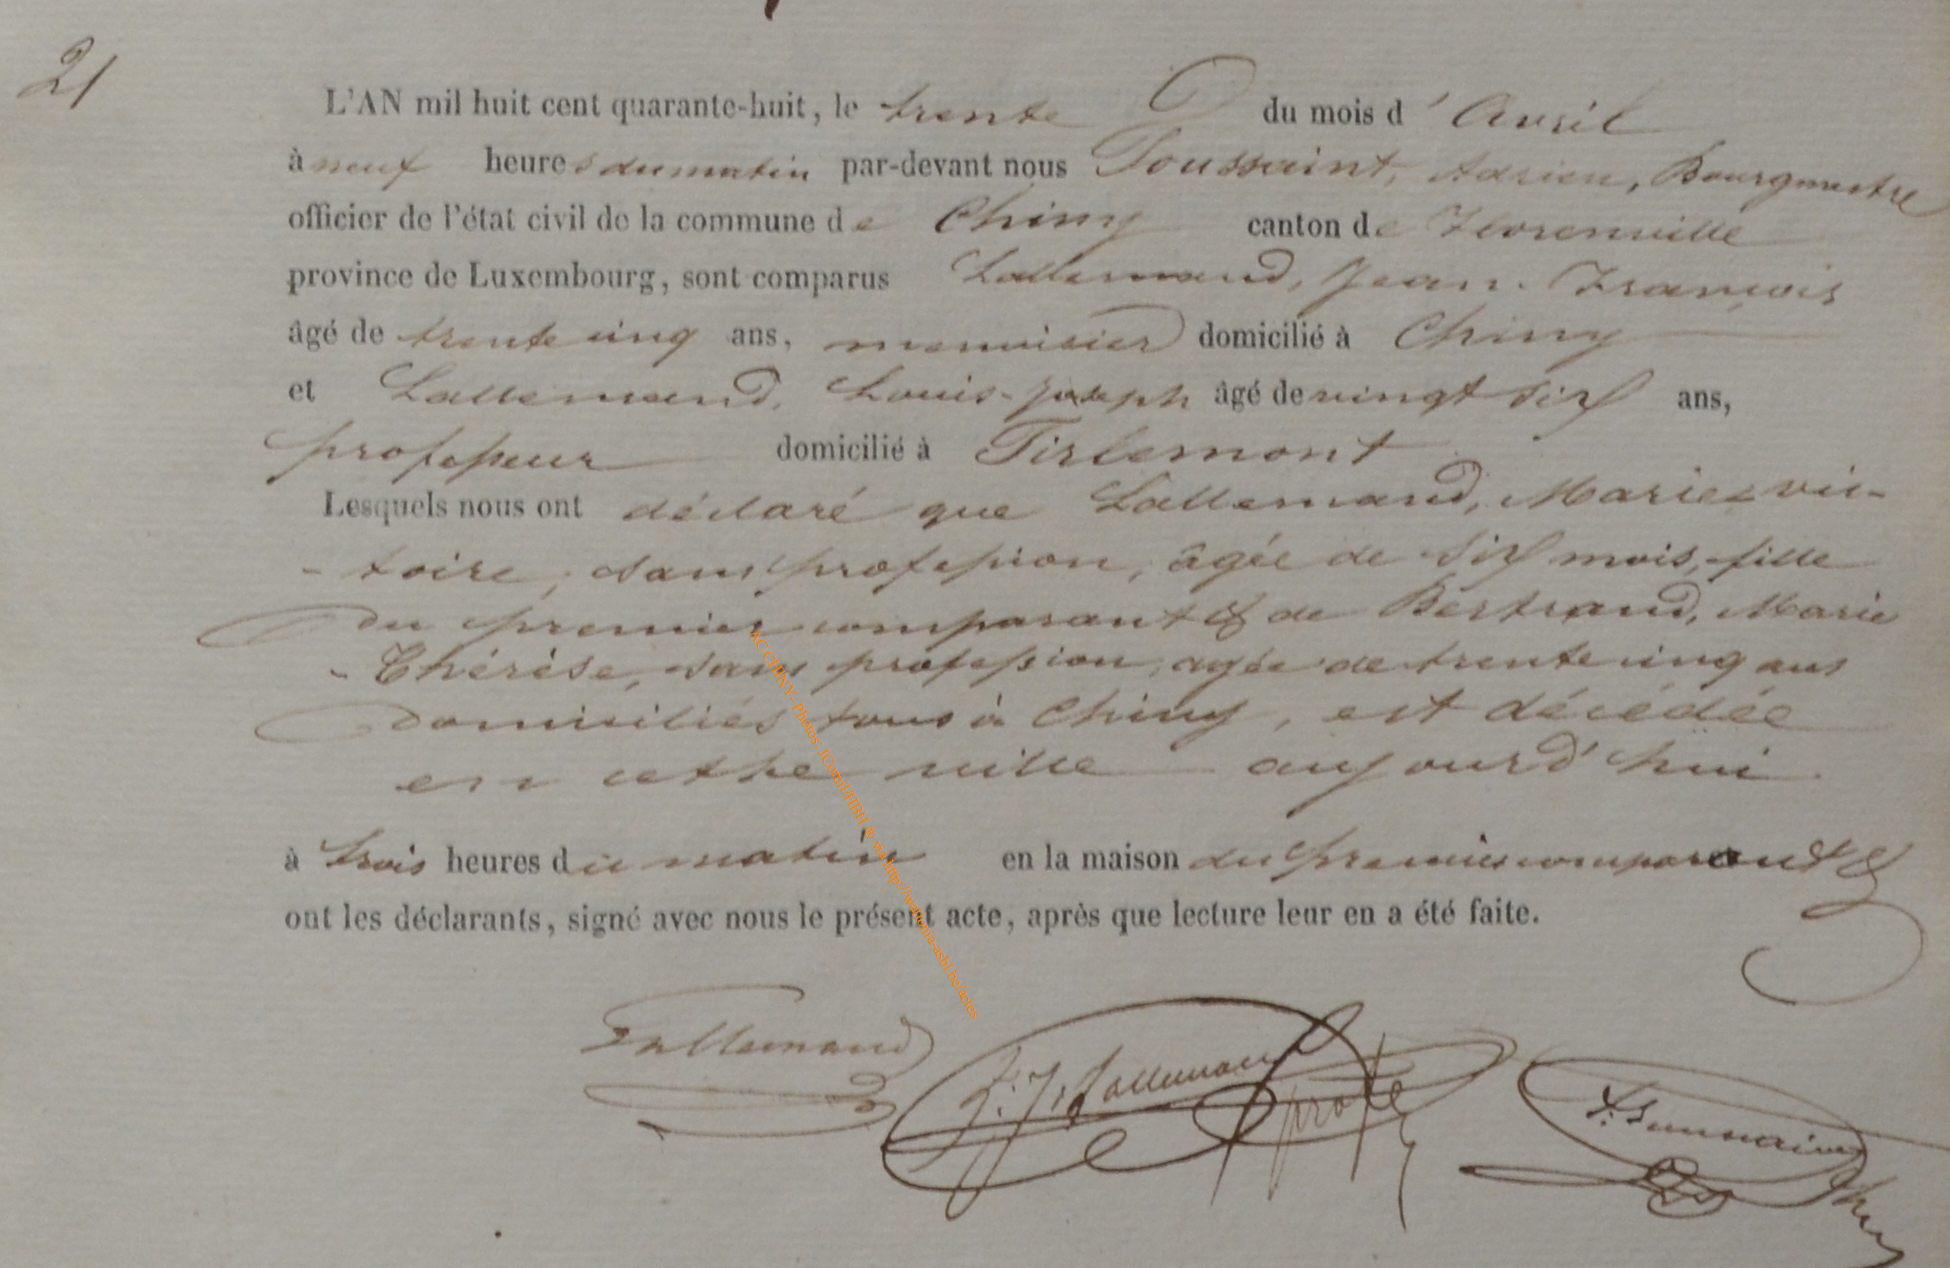 21
L'AN mil huit cent quarante-huit, le trente du mois d'Avril
à neuf heures du matin par-devant nous Toussaint, Adrien, Bourgmestre
officier de l'état civil de la commune de Chiny canton de Florenville
province de Luxembourg, sont comparus Lallemand, Jean-François
âgé de trente cinq ans, menuisier domicilié à Chiny
et Lallemand, Louis-Joseph âgé de vingt six ans,
professeur domicilié à Tirlemont
Lesquels nous ont déclaré que Lallemand, Marie vic-
-toire, sans profession, âgée de six mois, fille
du premier comparant & de Bertrand, Marie
-Thérèse, sans profession, agée de trente cinq ans
domiciliés tous à Chiny, est décédée
en cette ville aujourd'hui
à trois heures du matin en la maison du premier comparant &
ont les déclarants, signé avec nous le présent acte, après que lecture leur en a été faite.
Lallemand L. J. Lallemand prof A. Toussaint